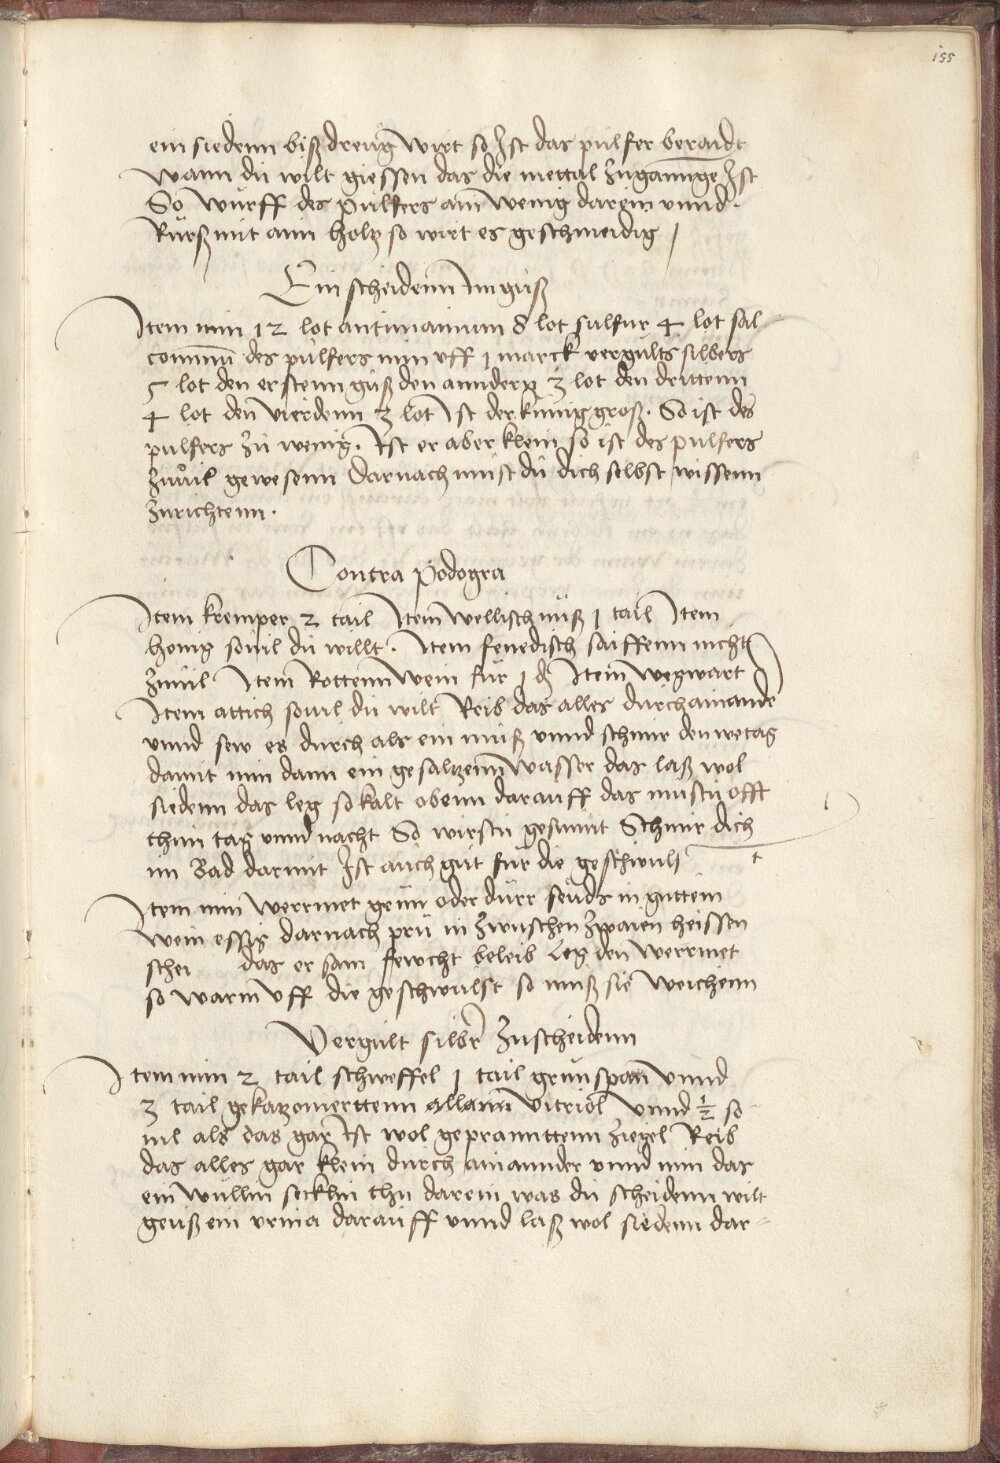 155
ein siedenn biß dreug wirt so Jst das pulfer beraidt
Wann du wilt giessen das die mettal zugannge Jst
So wurff des pulfers ain wenig darein vnnd
Rurß mit ann holtz so wirt es geschmeidig
Ein scheidenn Jm guß
Jtem nim 12 lot antimaimum 8 lot sulfur 4 lot sal
commun des pulfers nim vff 1 marck vergults silbers
5 lot den erstenn guß den anndern 3 lot den drittenn
4 lot den vierdenn 3 lot Jst der kunig groß. So ist des
pulfers zu wenig. Jst er aber klein so ist des pulfers
zuuil gewesenn Darnach must du dich selbst wissenn
zurichtenn.
Contra podogra
Jtem kremper 2 tail Jtem wellisch nuß 1 tail Jtem
honig souil du willt. Jtem fenedisch saiffenn nicht
zuuil Jtem Rottenn wein fur 1 d Jtem wegwart
Jtem attich souil du wilt Reib das alles durchainander
vnnd sew es durch als ein muß vnnd schmir den wetag
damit nim dann ein gesaltzenn wasser das laß wol
siedenn das leg so kalt obenn darauff das mustu offt
thun tag vnnd nacht So wirstu gesunnt Schmir dich
im Bad darmit Jst auch gut fur die geschwulst
Jtem nim werrmet grun oder durr seuds in guttem
wein essig darnach pru in zwuschen zwaien heissen
schei das er sam fewcht beleib Leg den werrmet
so warm vff die geschwulst so muß sie weichenn
Vergult silber zuscheidenn
Jtem nim 2 tail schweffel 1 tail grunspan vnnd
3 tail gekatzomerttenn allann vitriol vnnd 1/2 so
uil als das gar Jst wol geprannttenn ziegel Reib
das alles gar klein durch ainannder vnnd nim das
ein wullin secklin thu darein was du scheidenn wilt
geuß ein vrina darauff vnnd laß wol siedenn dar=